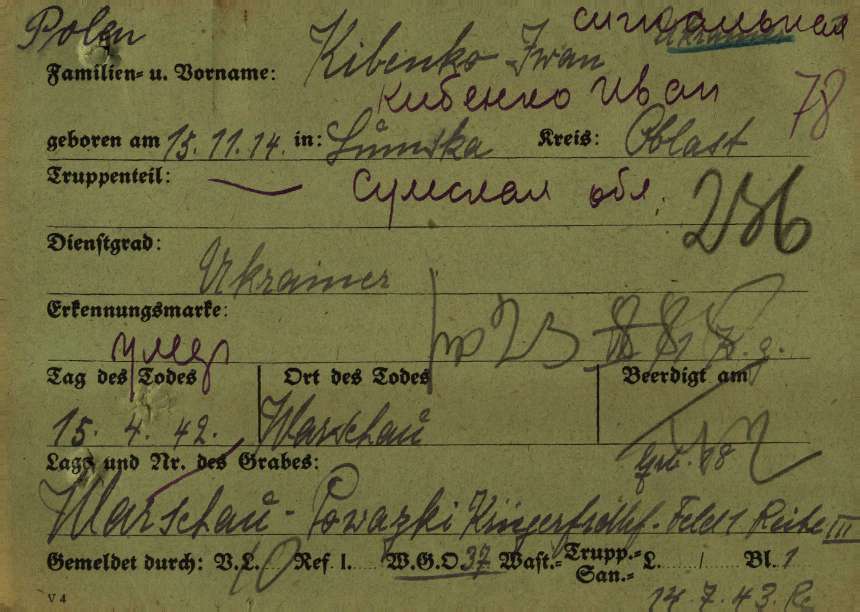 Polen сигнальная
Familien- u. Vorname: Kibenko Iwan
Кибенко Иван 78
geboren am 15.11.14. in: Sumska Kreis: Oblast
Truppenteil: — Сумская обл. 236
Dienstgrad:
Ukrainer
Erkennungsmarke:
умер
Tag des Todes Ort des Todes Beerdigt am
15. 4. 42. Warschau
Lage und Nr. des Grabes: Grb. 78
Warschau - Powazki Kriegerfrdhf. Feld 1 Reihe III
Gemeldet durch: V.L. Ref. I. W.G.O 37 Wast.- Trupp.- San.- L. / Bl. 1
V 4 14.7.43.